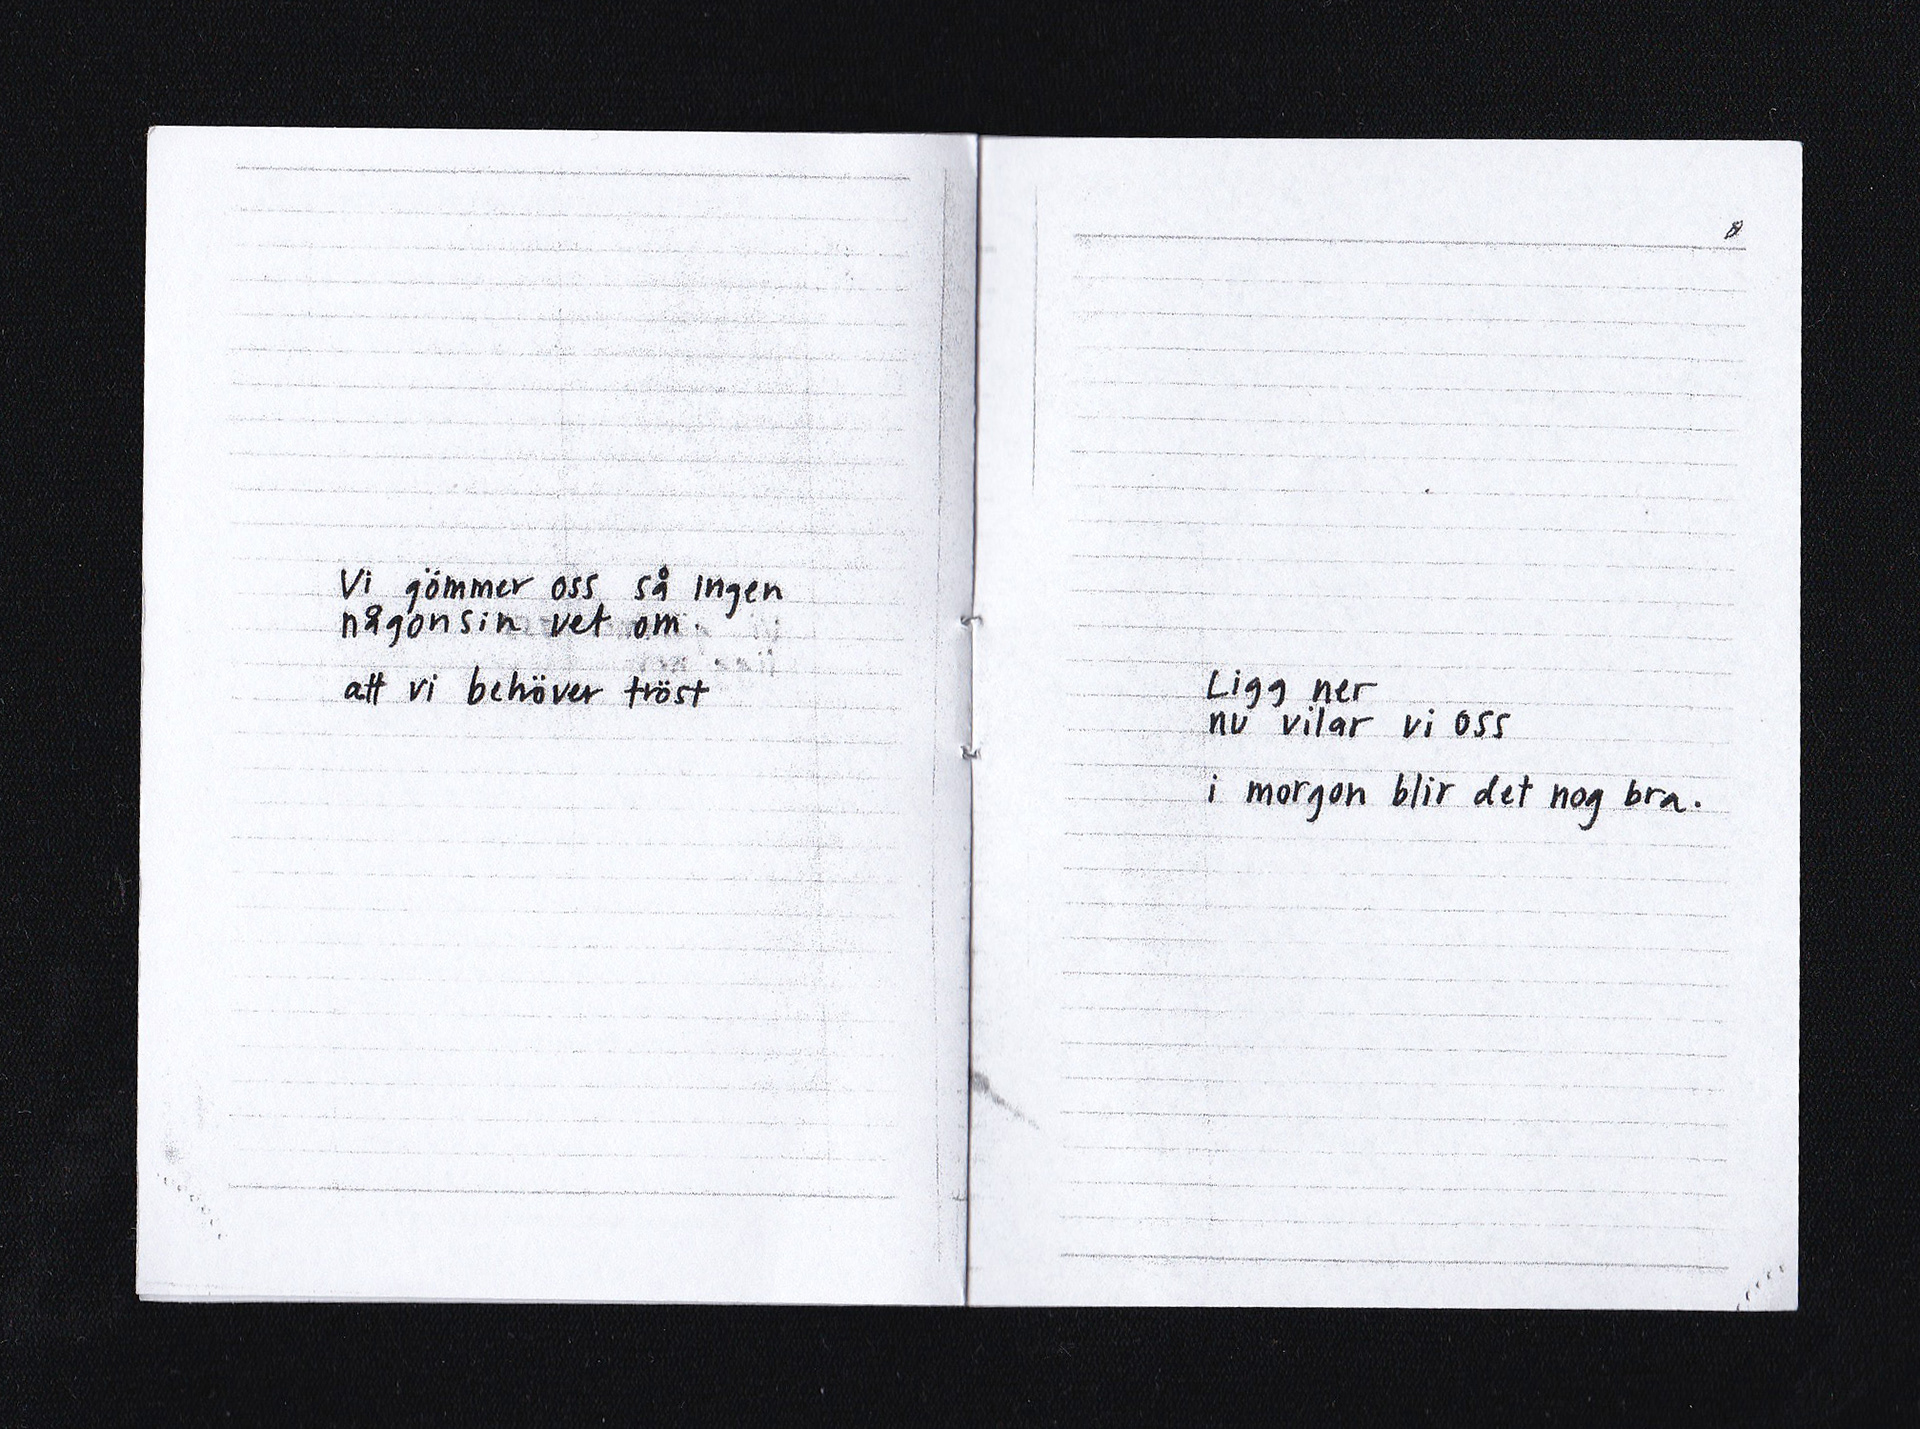 Vi gömmer oss så ingen
någonsin vet om.
att vi behöver tröst
8
Ligg ner
nu vilar vi oss
i morgon blir det nog bra.